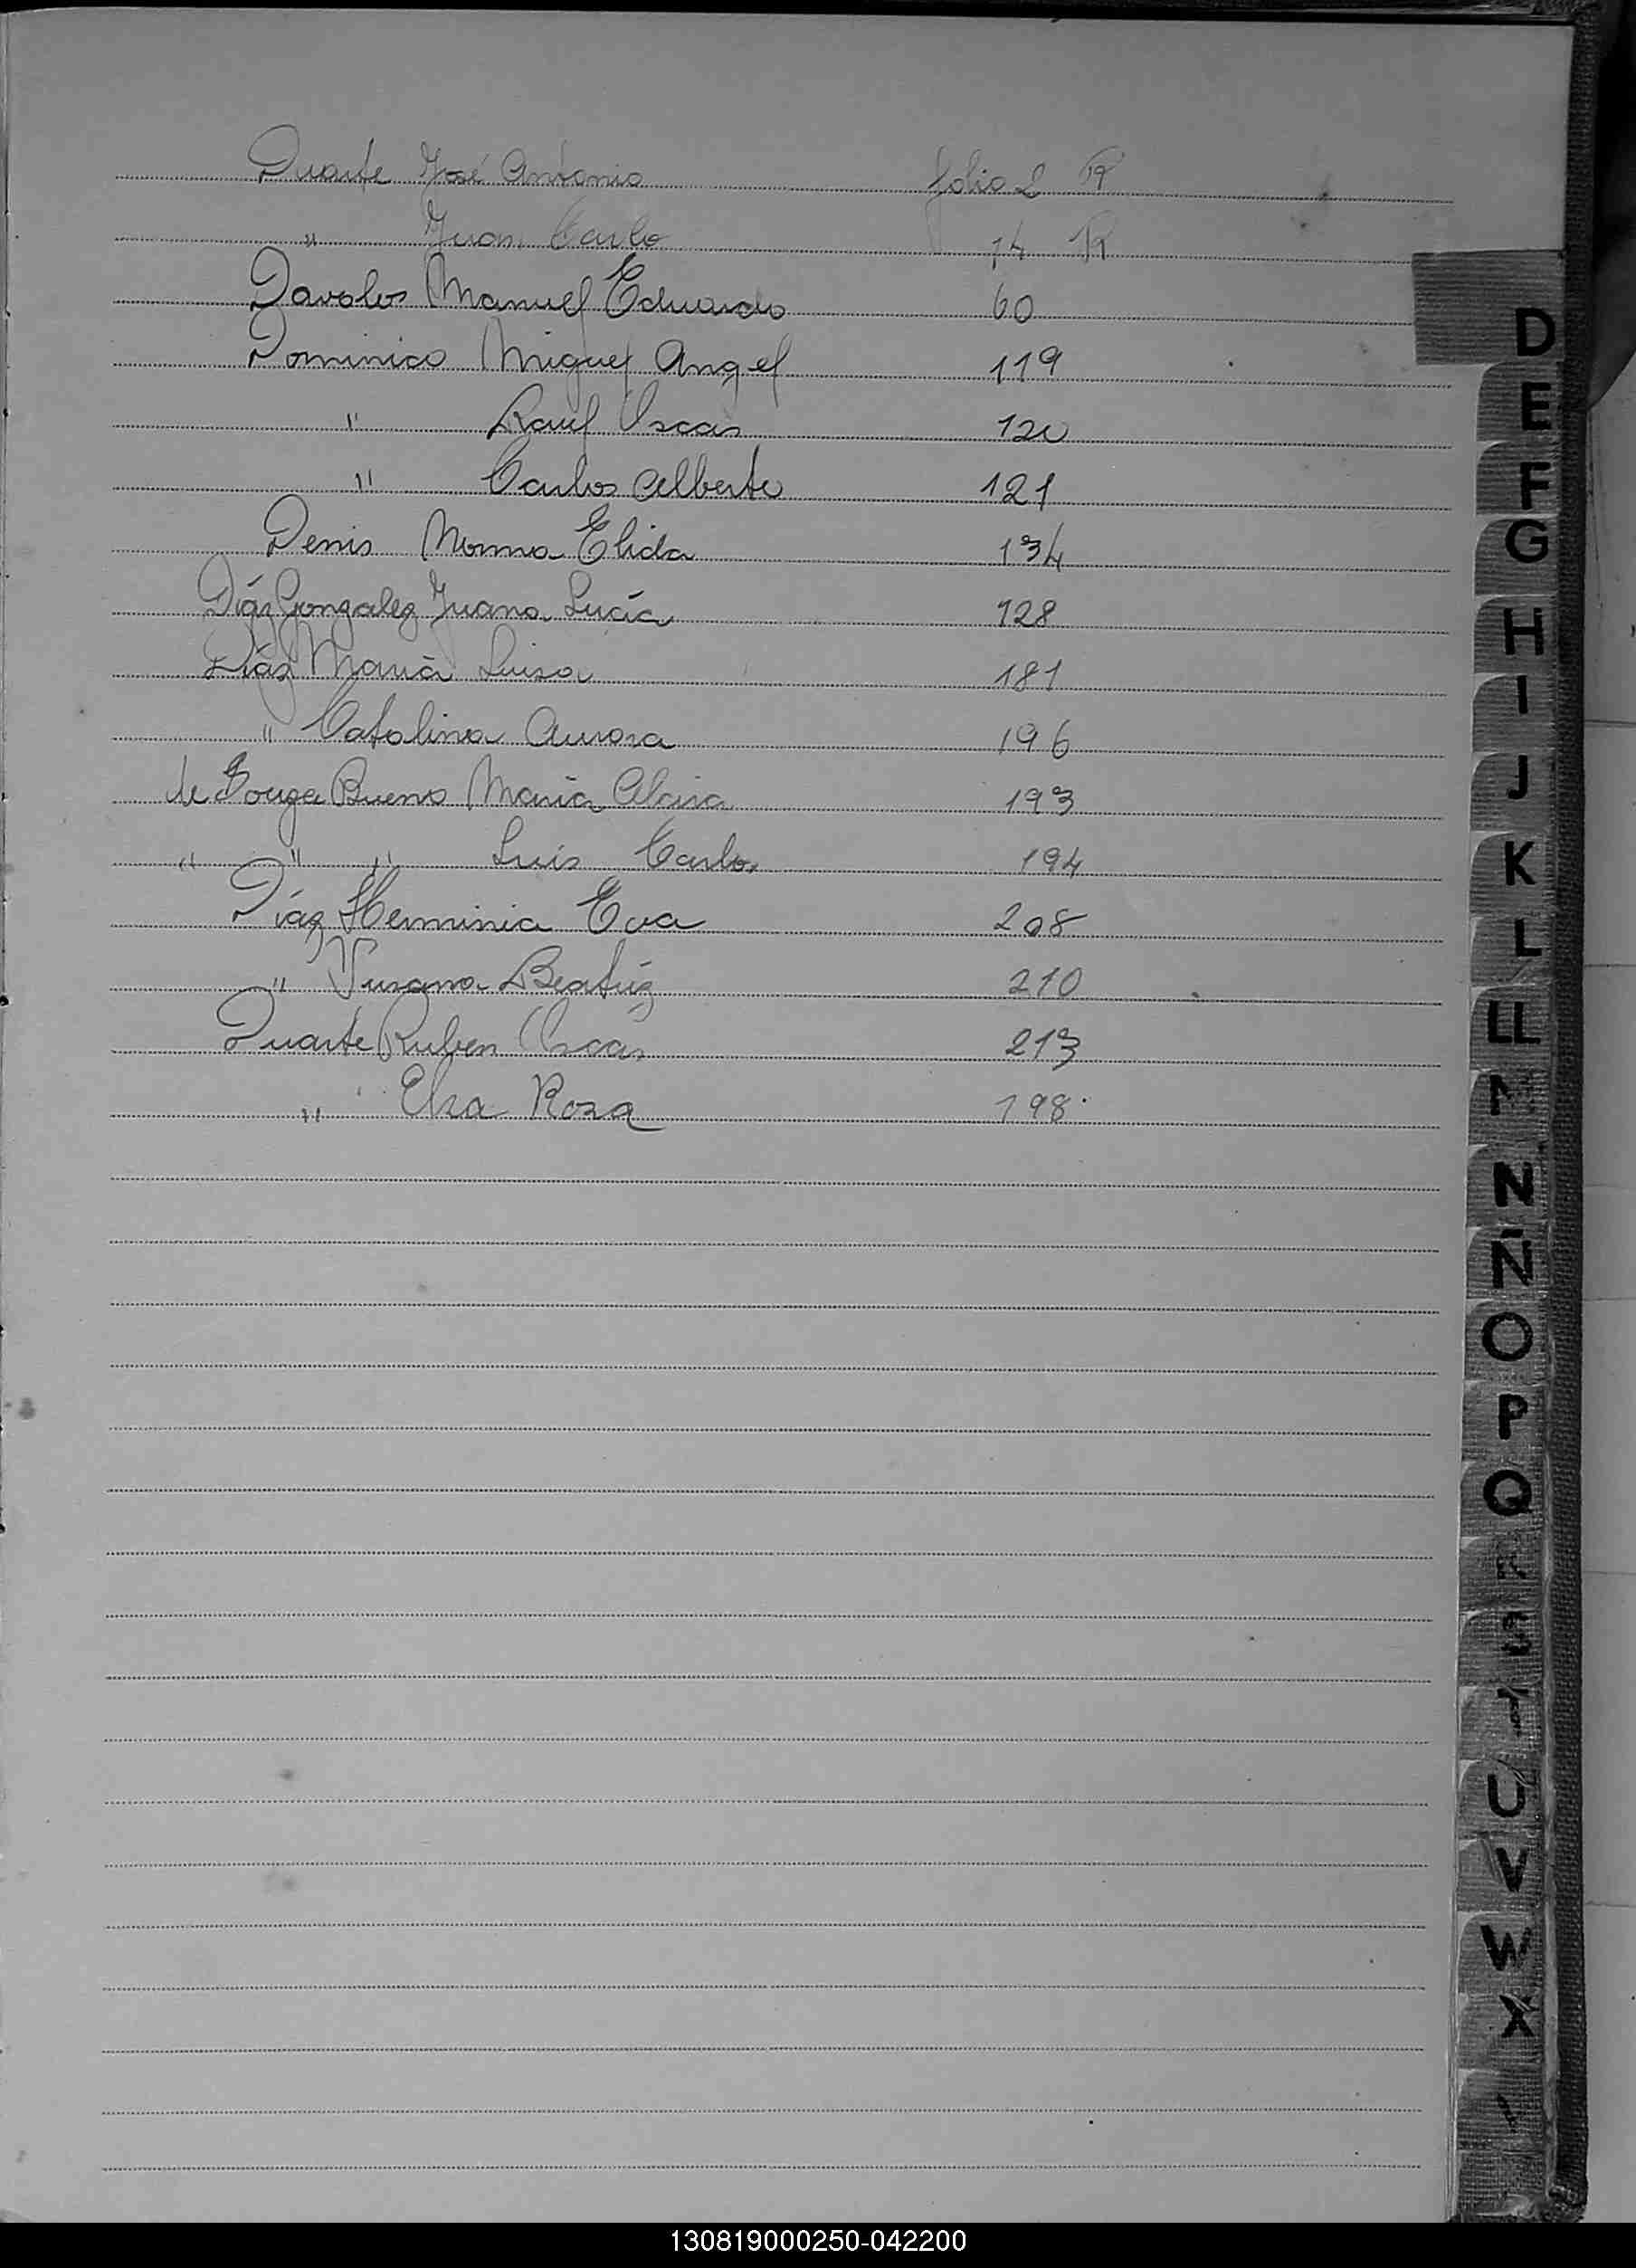 Duarte José Antonio folio 2 R
" Juan Carlo 14 R
Davalos Manuel Eduardo 60
Dominico Miguel Angel 119
" Raul Oscar 120
" Carlos Alberto 121
Denis Norma Elida 134
Díaz Gonzalez Juana Lucía 128
Díaz María Luisa 181
" Catalina Aurora 196
de Souza Bueno María 193
" " " Luis Carlos 194
Díaz Herminia Eva 208
" Susana Beatríz 210
Duarte Ruben Oscar 213
" Elsa Rosa 198
D
E
F
G
H
I
J
K
L
LL
N
Ñ
O
P
Q
U
V
W
X
130819000250-042200